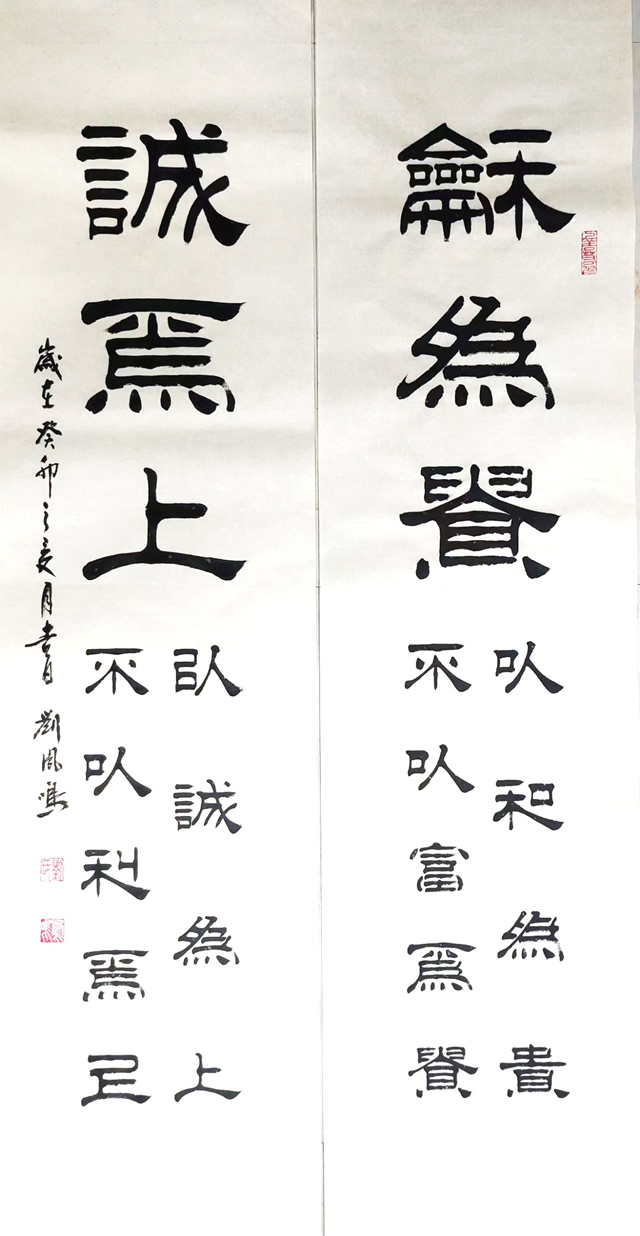 龢為貴
以和為貴
不以富為貴
誠為上
以誠為上
不以利為
歲在癸卯之夏月書 劉鳳鳴